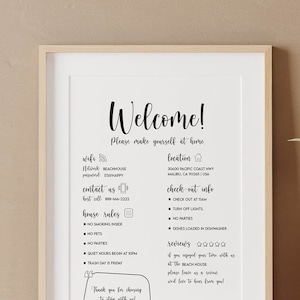 Welcome!
Please make yourself at home
wifi
Network: BEACHHOUSE
password: STAYHAPPY
contact us
host cell: 888-666-2222
house rules
NO SMOKING INSIDE
NO PETS
NO PARTIES
QUIET HOURS BEGIN AT 10PM
TRASH DAY IS FRIDAY
location
30600 PACIFIC COAST HWY
MALIBU, CA 90265 | USA
check-out info
CHECK OUT AT 11AM
TURN OFF LIGHTS
NO PARTIES
DISHES LOADED IN DISHWASHER
reviews
if you enjoyed your time with us
at the BEACH HOUSE
please leave us a review
and love to hear from you!
Thank you for choosing
to stay with us!